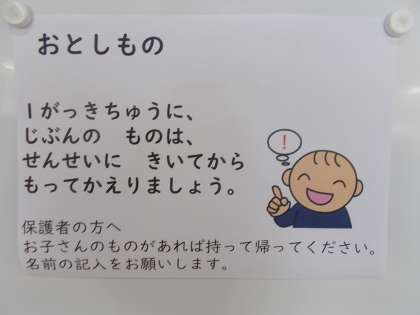 おとしもの
1がっきちゅうに、
じぶんの　ものは、
せんせいに　きいてから
もってかえりましょう。
!
保護者の方へ
お子さんのものがあれば持って帰ってください。
名前の記入をお願いします。